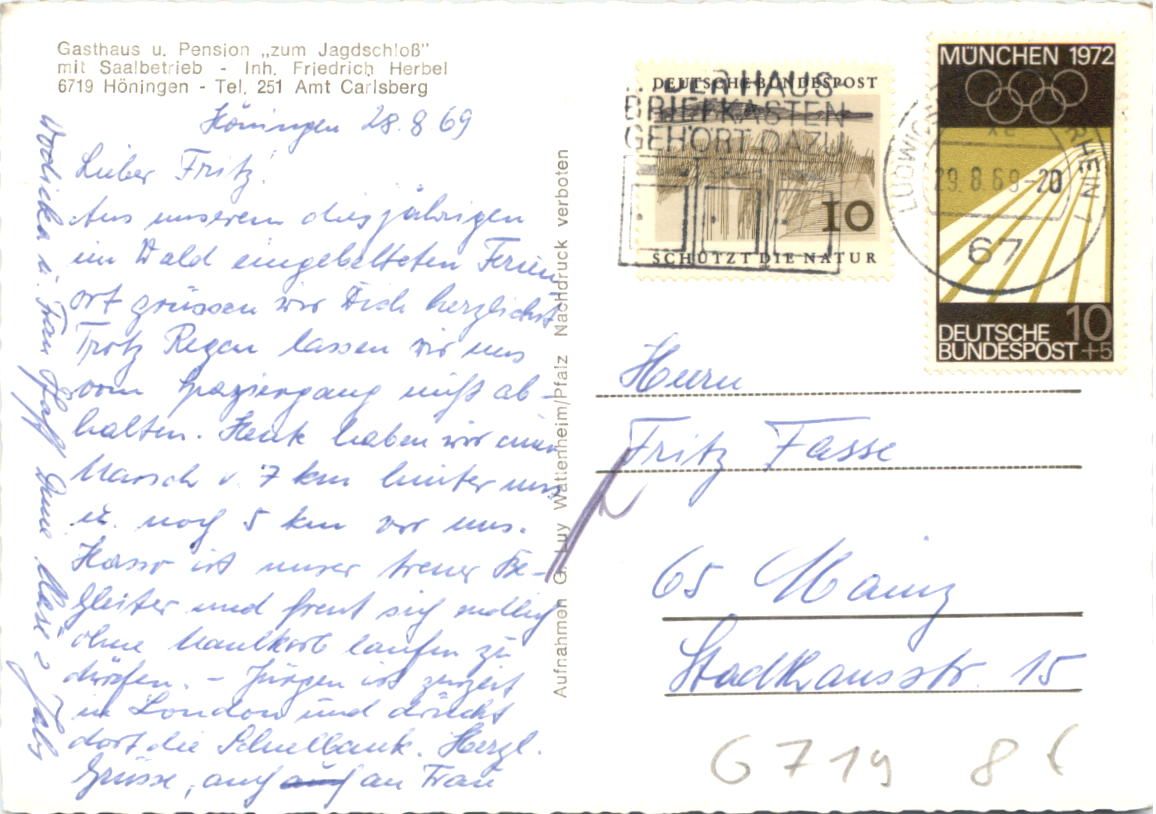 Gasthaus u. Pension „zum Jagdschloß"
mit Saalbetrieb - Inh. Friedrich Herbel
6719 Höningen - Tel. 251 Amt Carlsberg
Höningen 28.8.69
Lieber Fritz!
Aus unserem diesjährigen
im Wald eingebetteten Ferien
ort grüssen wir Dich herzlichst
Trotz Regen lassen wir uns
vom Spaziergang nicht ab-
halten. Heute haben wir einen
Marsch v. 7 km hinter uns
u. noch 5 km vor uns.
Hasso ist unser treuer Be-
gleiter und freut sich endlich
ohne Maulkorb laufen zu
dürfen. - Jürgen ist zurzeit
in London und drückt
dort die Schulbank. Herzl.
Grüsse, auch auch an Frau
u. Frau
Aufnahmen G. Luy Wattenheim/Pfalz Nachdruck verboten
DEUTSCHE BUNDESPOST
10
SCHÜTZT DIE NATUR
... DER HAUS-
BRIEFKASTEN
GEHÖRT DAZU
MÜNCHEN 1972
10
+5
DEUTSCHE
BUNDESPOST
29.8.69-20
67
Herrn
Fritz Fasse
65 Mainz
Stadthausstr. 15
6719